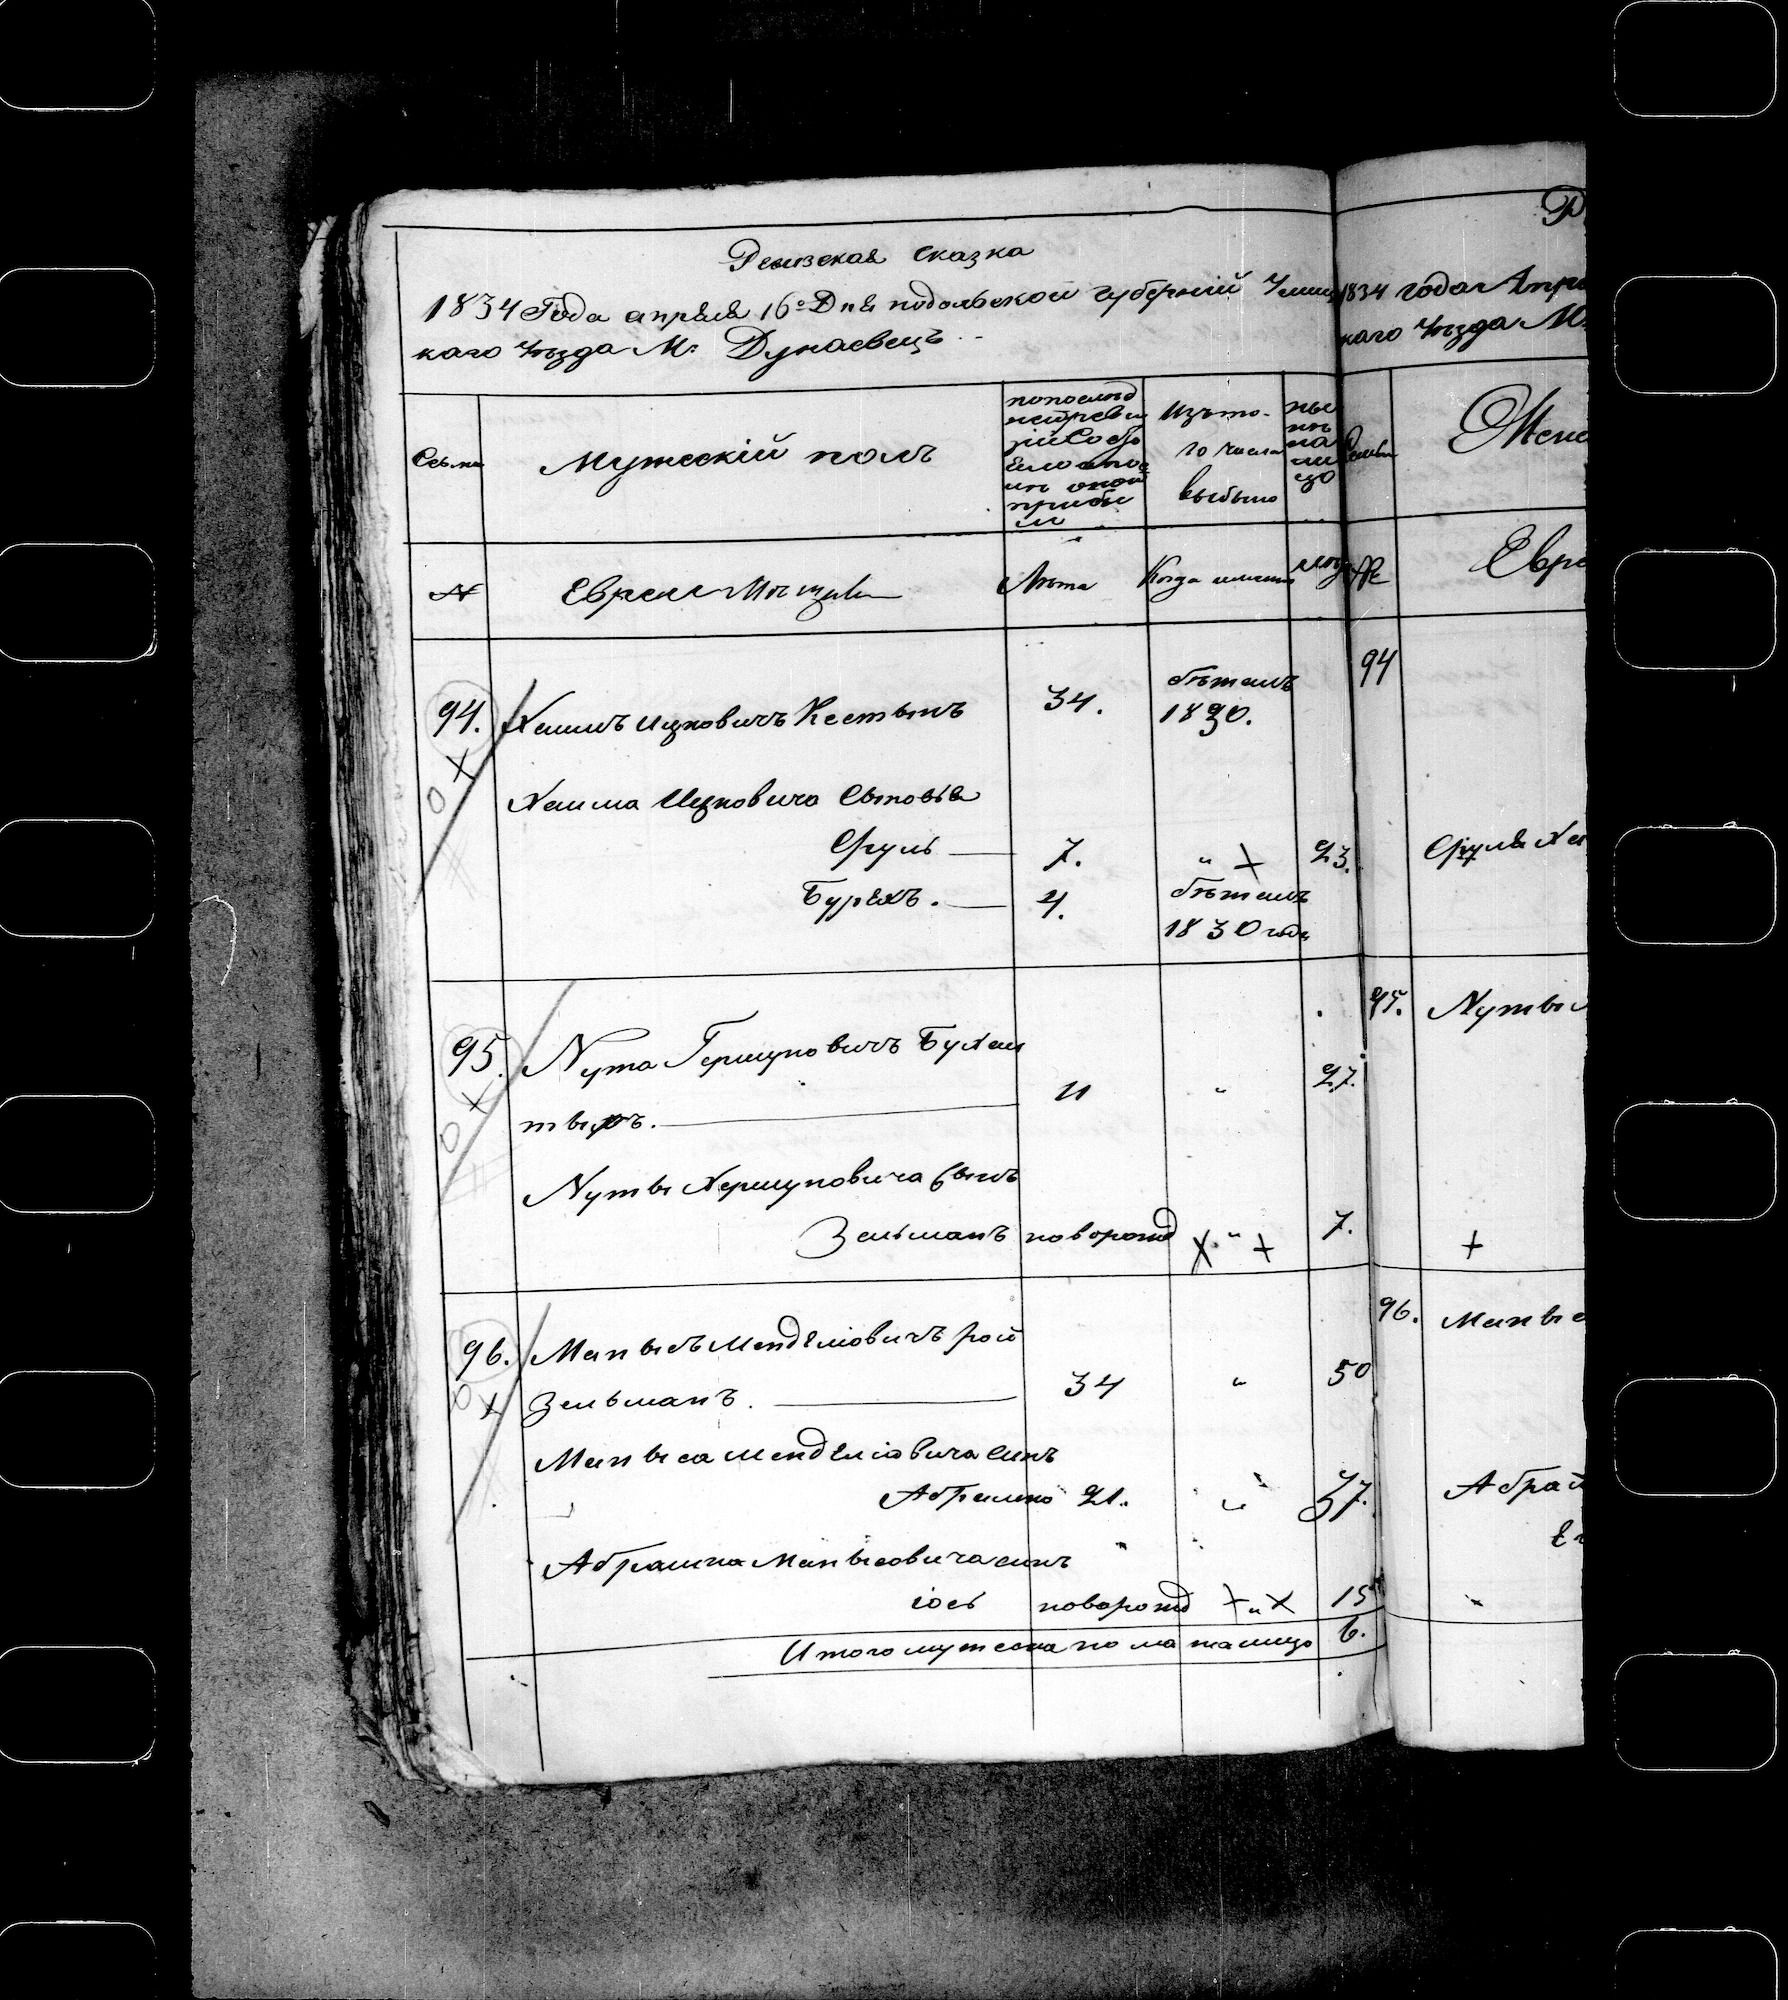 Ревизская сказка
1834 Года апреля 16° Дня подольской губерній Ушиц
каго Уѣзда М: Дунаевецъ
Сѣмьи
Мужескій полъ
по послѣд
ней реви
зіи Состо
яло и по
сл оной
прибы
ли
Изъ то-
го числа
выбыло
ны
нѣ
на
ли
цо
№
Евреи Мѣщане
Лѣта
Когда именно
лѣта
94.
Хаимъ Ицковичъ Кестынъ
34.
бѣжалъ
1830.
Хаима Ицковича Сыновья
Сруль
7.
" +
23.
Бурехъ.
4.
бѣжалъ
1830 года
95.
Нута Гершковичъ Бухаи
27.
тыръ.
11
"
Нуты Хершковича Сынъ
Зельманъ
новорожд
"
7.
96.
Манысъ Менделіовичъ рой
Зельманъ.
34
"
50
Маныса Менделіовича синъ
Абрамко
21.
"
37.
Абрамка Манысовича синъ
іось
новорожд
+ " х
15
Итого мужеска пола на лицо
6.
1834 года Апре
каго Уѣзда М:
Жено
№
Евре
94
Сруля Ха
95.
Нуты
+
96.
Маныс
Абрам